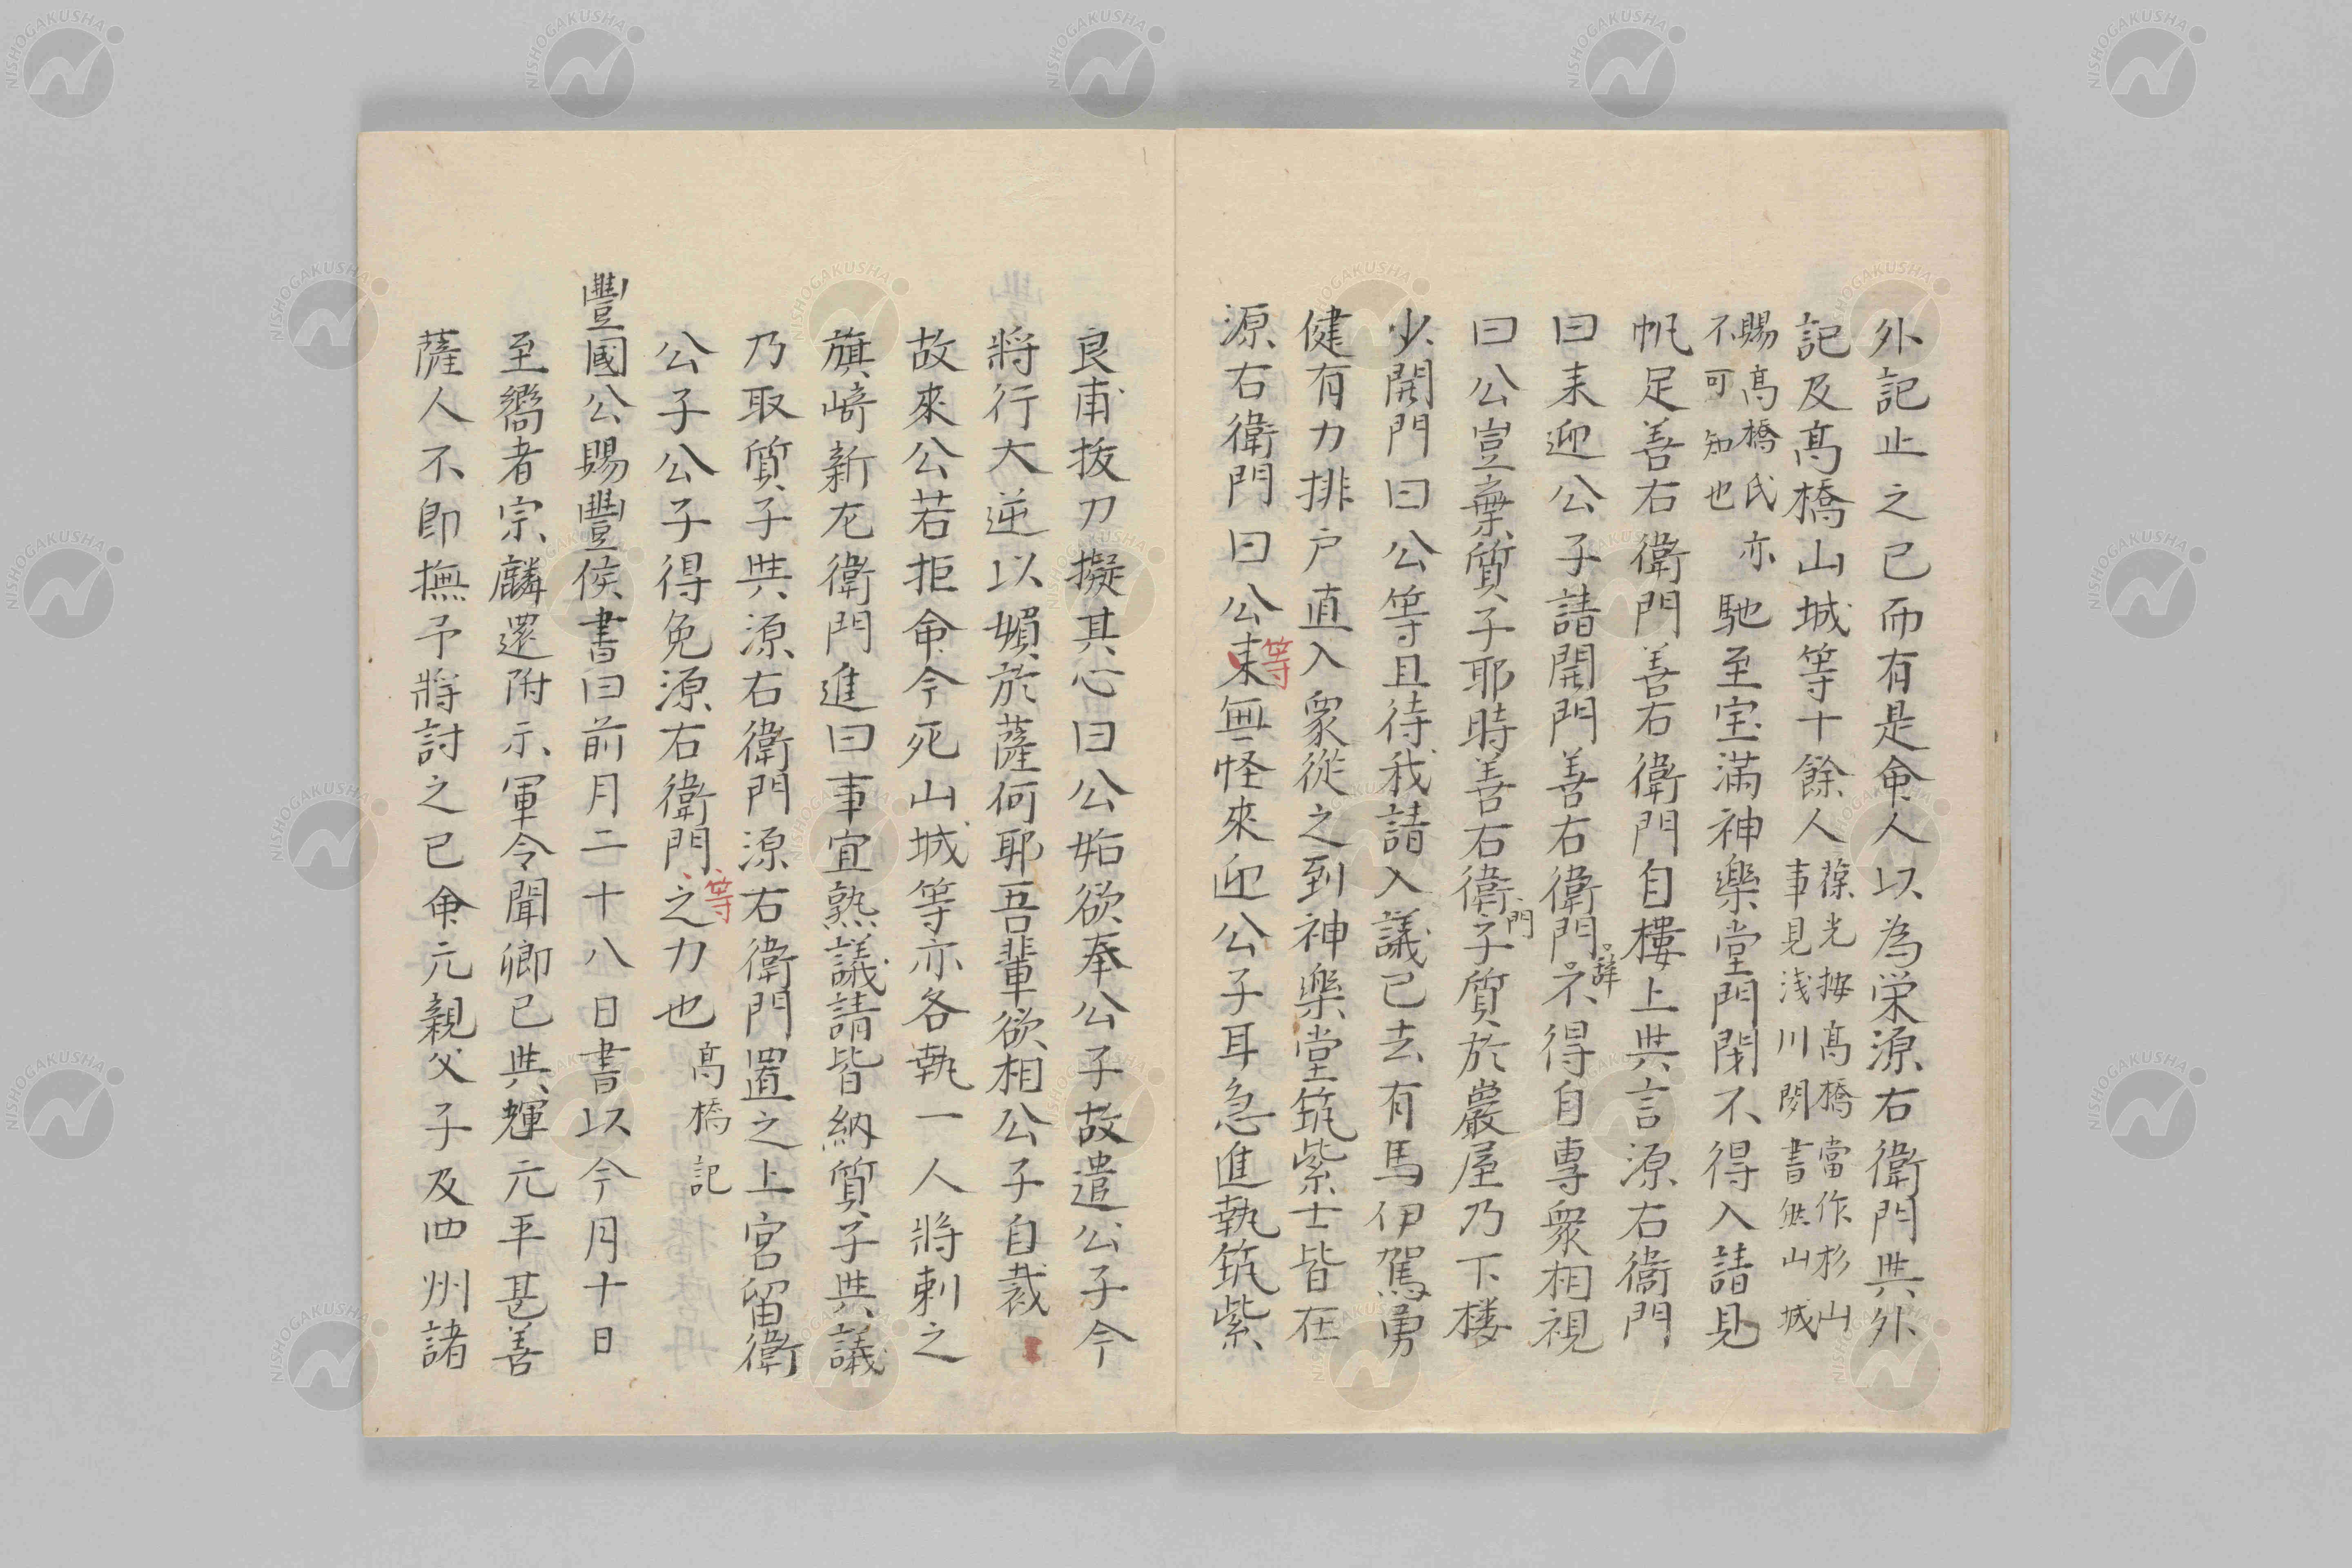 外記止之已而有是命人以為栄源右衛門與外
記及髙橋山城等十餘人葆光按髙橋當作杉山
事見浅川聞書然山城
賜髙橋氏亦
不可知也馳至宝滿神樂堂門閉不得入請見
帆足善右衛門善右衛門自樓上與言源右衛門
曰来迎公子請開門善右衛門辞不得自專衆相視
曰公豈棄質子耶時善右衛門子質於巖屋乃下楼
少開門曰公等且待我請入議已去有馬伊駕勇
健有力排戸直入衆從之到神樂堂筑紫士皆在
源右衛門曰公等来無怪來迎公子耳急進執筑紫
良甫抜刀擬其心曰公始欲奉公子故遣公子今
將行大逆以媚於薩何耶吾輩欲相公子自裁
故來公若拒命今死山城等亦各執一人將刺之
旗﨑新左衛門進曰事宜熟議請皆納質子與議
乃取質子與源右衛門源右衛門置之上宮留衛
公子公子得免源右衛門等之力也髙橋記
豐國公賜豐侯書曰前月二十八日書以今月十日
至嚮者宗麟還附示軍令聞卿已與輝元平甚善
薩人不即撫予將討之已命元親父子及四州諸
NISHOGAKUSHA